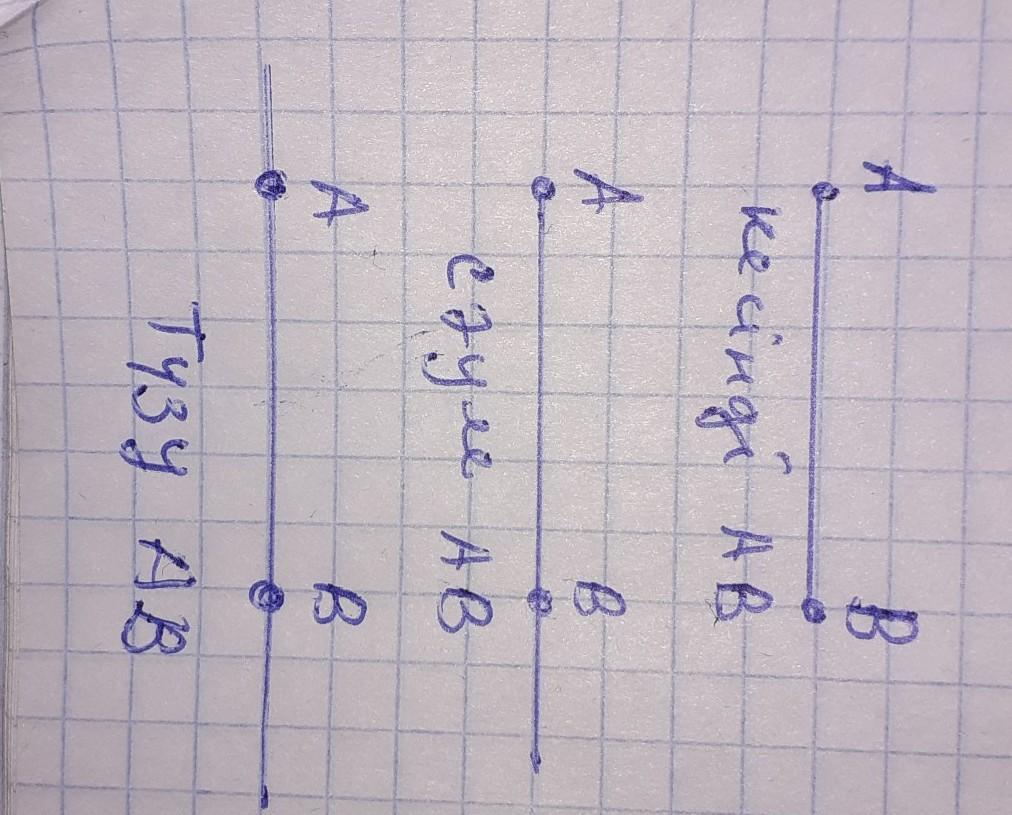 A B
кесінді AB
A B
сәуле AB
A B
Түзу AB